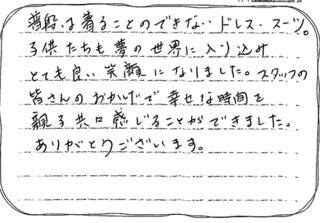 普段は着ることのできないドレス、スーツ。
子供たちも夢の世界に入り込み
とても良い笑顔になりました。スタッフの
皆さんのおかげで幸せな時間を
親子共に感じることができました。
ありがとうございます。